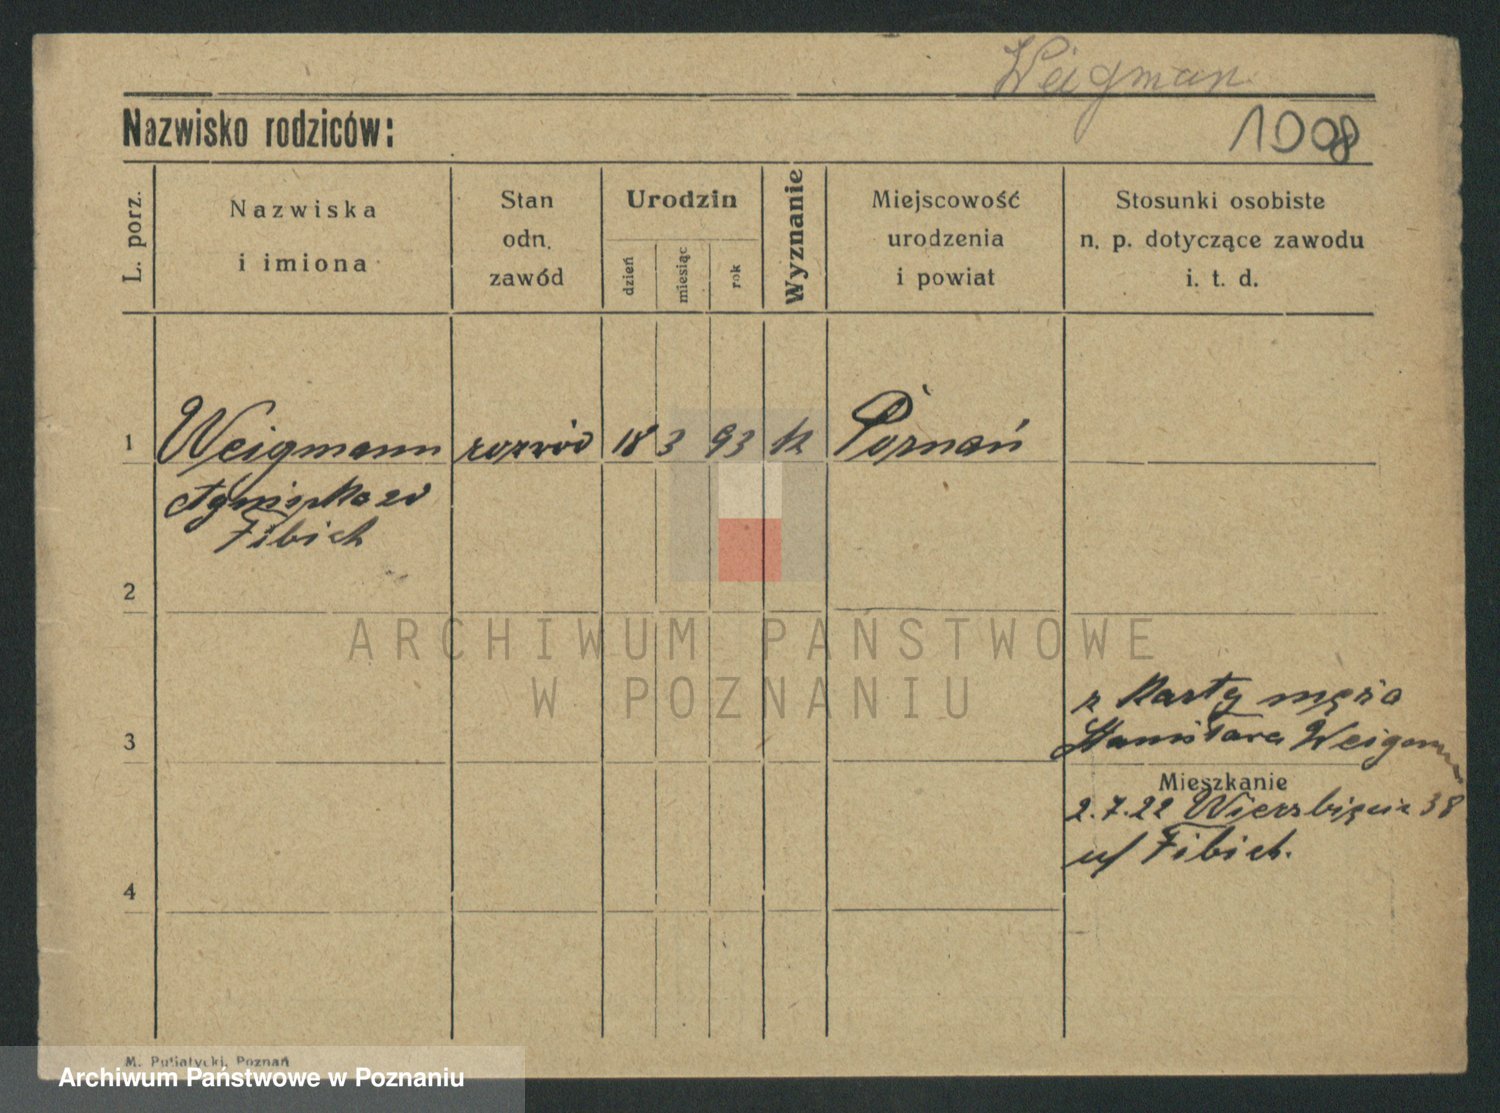 Weigman
Nazwisko rodziców:
1008
L. porz.
Nazwiska
i imiona
Stan
odn.
zawód
Urodzin
dzień
miesiąc
rok
Wyznanie
Miejscowość
urodzenia
i powiat
Stosunki osobiste
n. p. dotyczące zawodu
i. t. d.
1 Weigmann rozwód 18 3 93 k Poznań
Agnieszka zd
Fibich
2
ARCHIWUM PAŃSTWOWE
W POZNANIU
z karty męża
3 Stanisława Weigmann
Mieszkanie
2.7.22 Wierzbięcice 38
u/ Fibich.
4
M. Putiatycki, Poznań
Archiwum Państwowe w Poznaniu